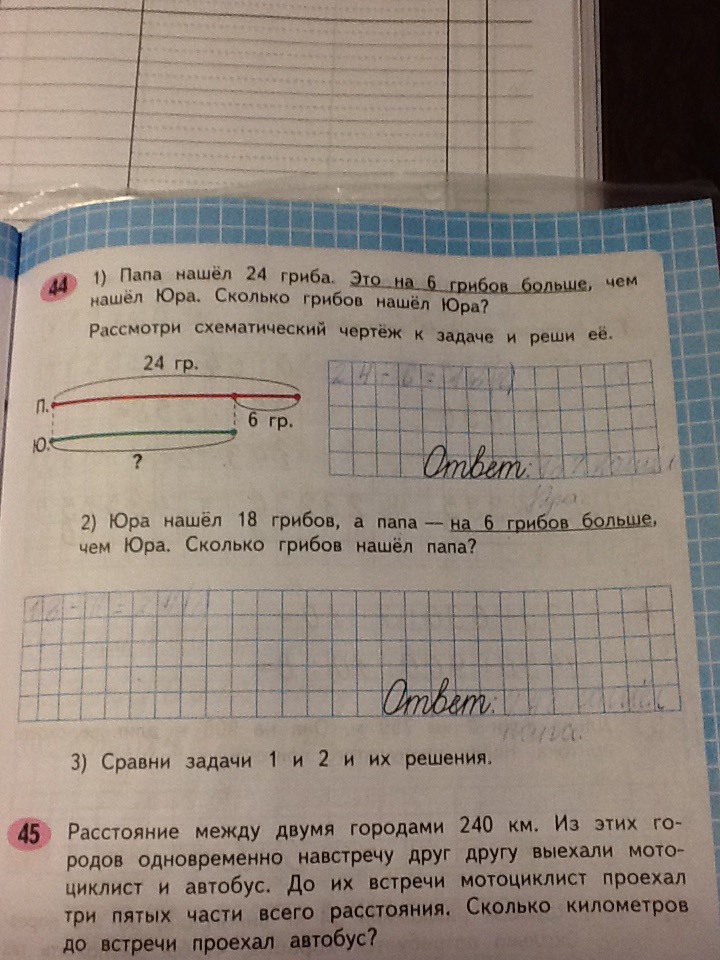 44
1) Папа нашёл 24 гриба. Это на 6 грибов больше, чем
нашёл Юра. Сколько грибов нашёл Юра?
Рассмотри схематический чертёж к задаче и реши её.
24 гр.
П.
6 гр.
Ю.
?
24-6=
Ответ:
2) Юра нашёл 18 грибов, а папа — на 6 грибов больше,
чем Юра. Сколько грибов нашёл папа?
Ответ:
3) Сравни задачи 1 и 2 и их решения.
45
Расстояние между двумя городами 240 км. Из этих го-
родов одновременно навстречу друг другу выехали мото-
циклист и автобус. До их встречи мотоциклист проехал
три пятых части всего расстояния. Сколько километров
до встречи проехал автобус?